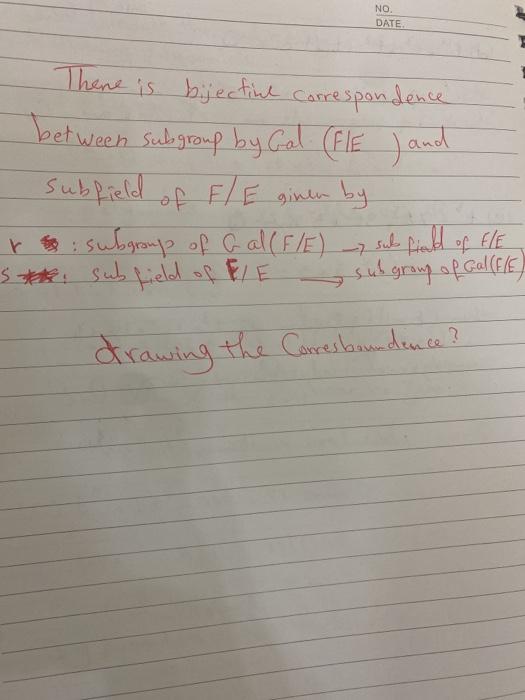 NO.
DATE.
There is bijective correspondence
between subgroup by Gal (F/E ) and
subfield of F/E given by
r : subgroup of Gal (F/E) → sub field of F/E
S : sub field of F/E → sub group of Gal(F/E)
drawing the Corresboundence?